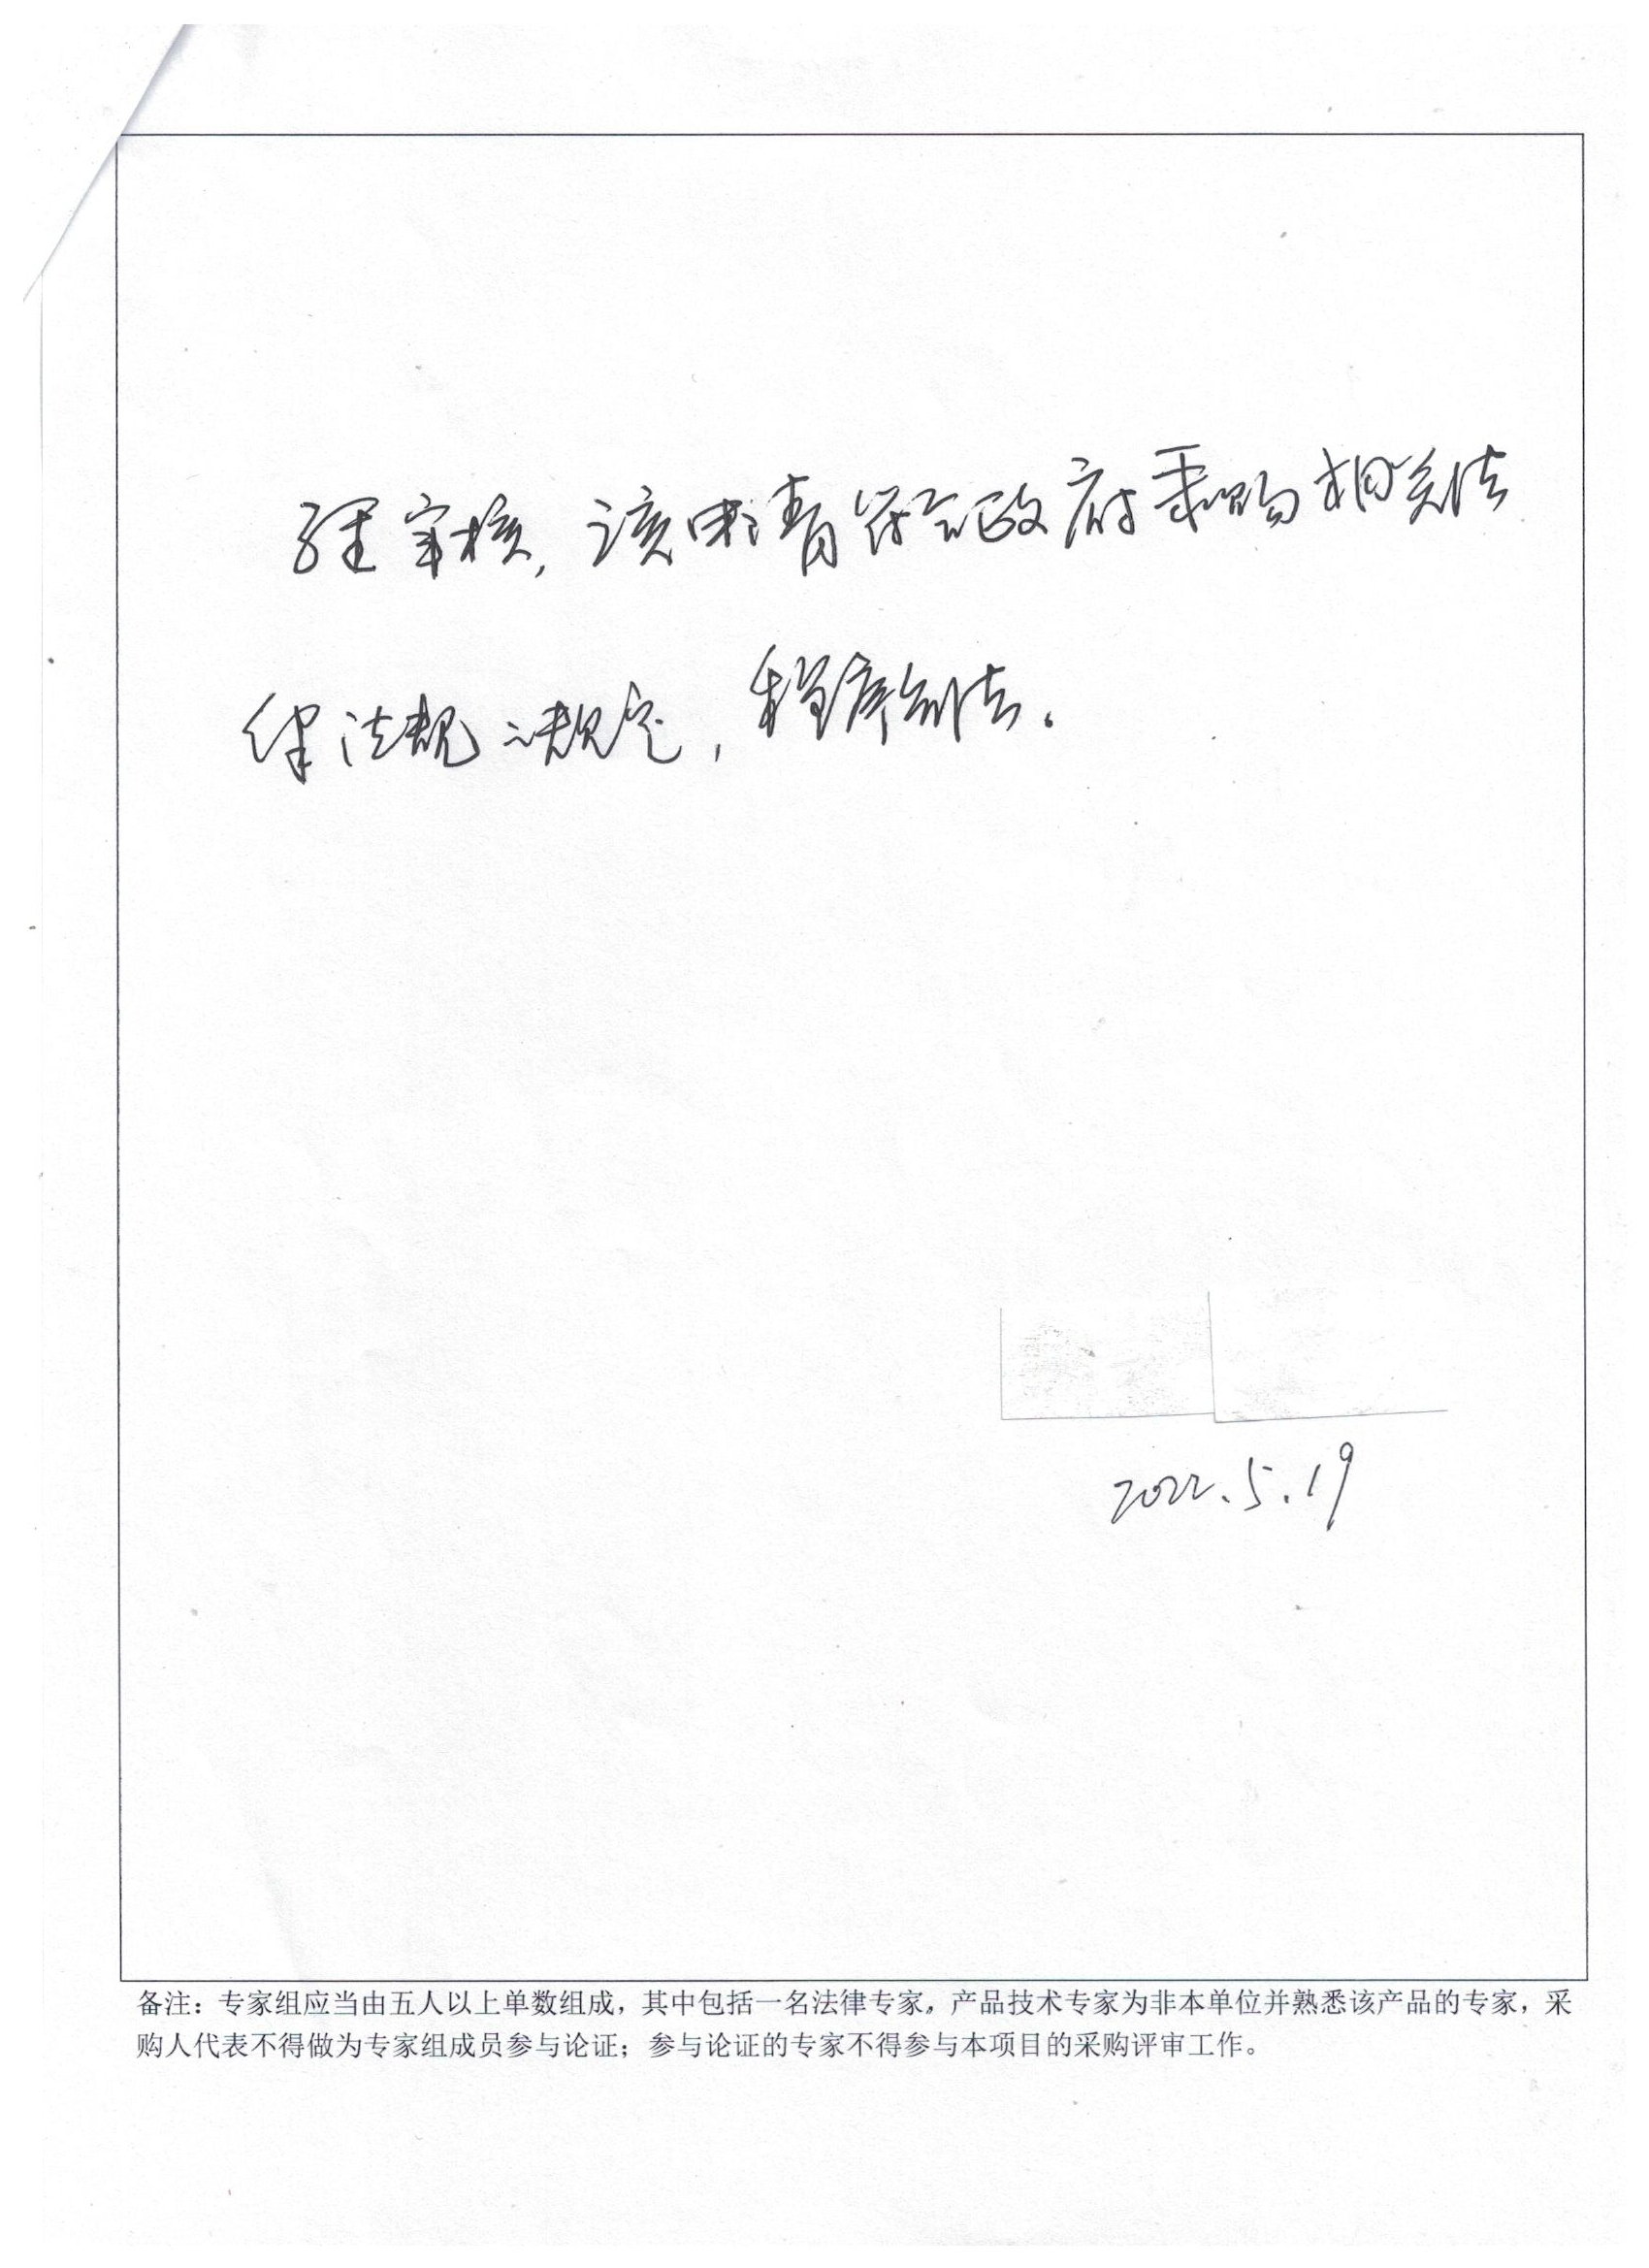 经审核，该申请符合政府采购相关法
律法规之规定，程序合法。
2022.5.19
备注：专家组应当由五人以上单数组成，其中包括一名法律专家，产品技术专家为非本单位并熟悉该产品的专家，采
购人代表不得做为专家组成员参与论证；参与论证的专家不得参与本项目的采购评审工作。